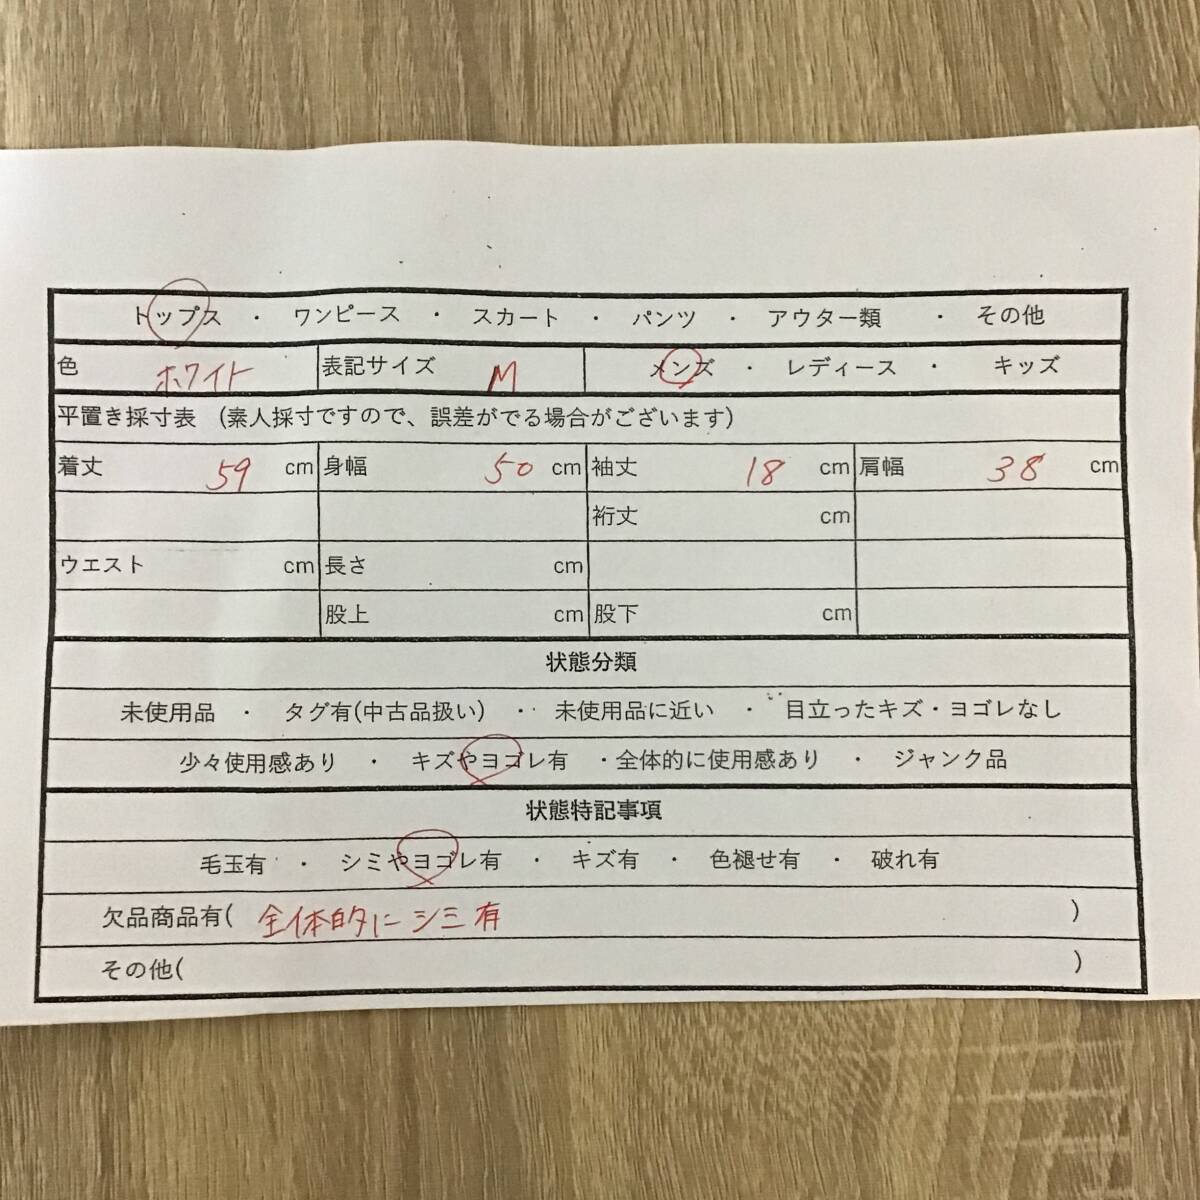 トップス ・ ワンピース ・ スカート ・ パンツ ・ アウター類 ・ その他
色 ホワイト 表記サイズ M メンズ ・ レディース ・ キッズ
平置き採寸表 (素人採寸ですので、誤差がでる場合がございます)
着丈 59 cm 身幅 50 cm 袖丈 18 cm 肩幅 38 cm
裄丈 cm
ウエスト cm 長さ cm
股上 cm 股下 cm
状態分類
未使用品 ・ タグ有(中古品扱い) ・ 未使用品に近い ・ 目立ったキズ・ヨゴレなし
少々使用感あり ・ キズやヨゴレ有 ・全体的に使用感あり ・ ジャンク品
状態特記事項
毛玉有 ・ シミやヨゴレ有 ・ キズ有 ・ 色褪せ有 ・ 破れ有
欠品商品有( 全体的にシミ有 )
その他( )